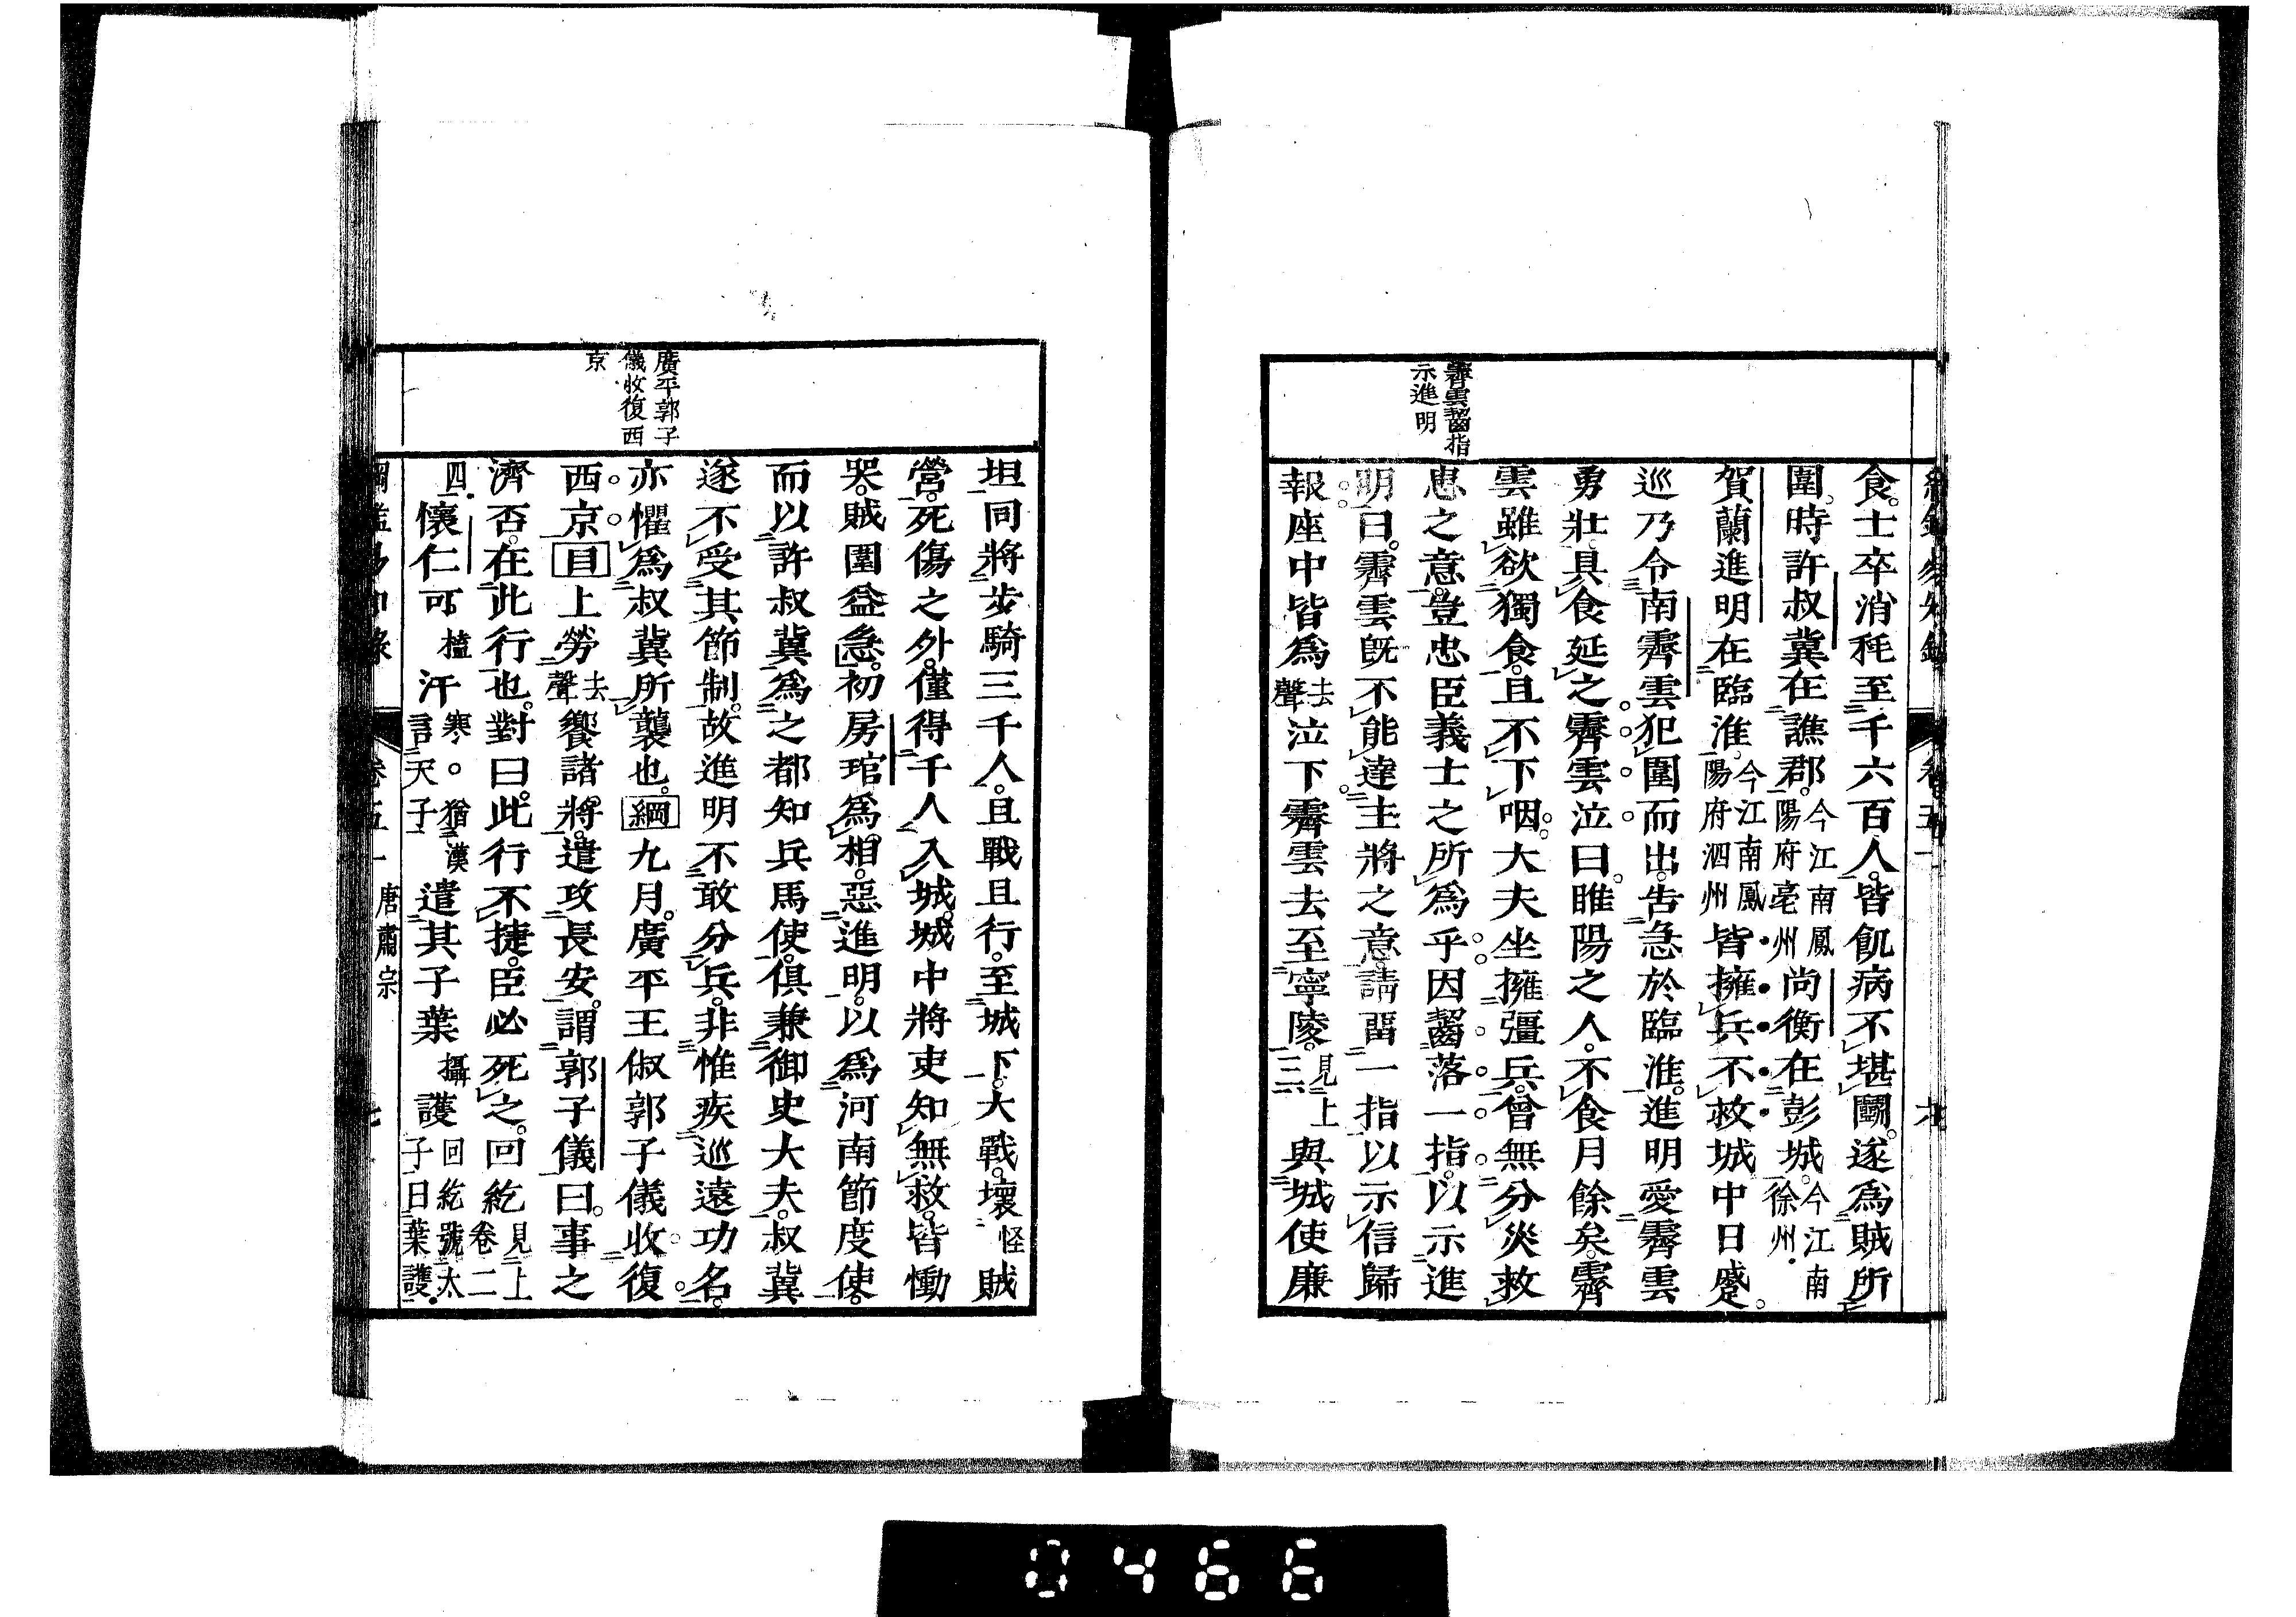 霽雲齧指
示進明
食。士卒消耗至千六百人。皆飢病不堪鬬。遂爲賊所
圍。時許叔冀在譙郡。今江南鳳陽府亳州尚衡在彭城。今江南徐州
賀蘭進明在臨淮。今江南鳳陽府泗州皆擁兵不救。城中日蹙。
巡乃令南霽雲犯圍而出。告急於臨淮。進明愛霽雲
勇壯。具食延之。霽雲泣曰。睢陽之人。不食月餘矣。霽
雲雖欲獨食。且不下咽。大夫坐擁彊兵。曾無分災救
患之意。豈忠臣義士之所爲乎。因齧落一指。以示進
明曰。霽雲旣不能達主將之意。請留一指以示信歸
報。座中皆爲去聲泣下。霽雲去至寧陵。見上三與城使廉
廣平郭子
儀收復西
京
坦同將步騎三千人。且戰且行。至城下。大戰。壞怪賊
營。死傷之外。僅得千人入城。城中將吏知無救。皆慟
哭。賊圍益急。初房琯爲相。惡進明。以爲河南節度使。
而以許叔冀爲之都知兵馬使。俱兼御史大夫。叔冀
遂不受其節制。故進明不敢分兵。非惟疾巡遠功名。
亦懼爲叔冀所襲也。綱九月。廣平王俶郭子儀收復
西京。目上勞去聲饗諸將。遣攻長安。謂郭子儀曰。事之
濟否。在此行也。對曰。此行不捷。臣必死之。回紇見上卷二
四懷仁可榼汗寒。猶漢言天子遣其子葉攝護回紇號太子曰葉護
唐肅宗
0466